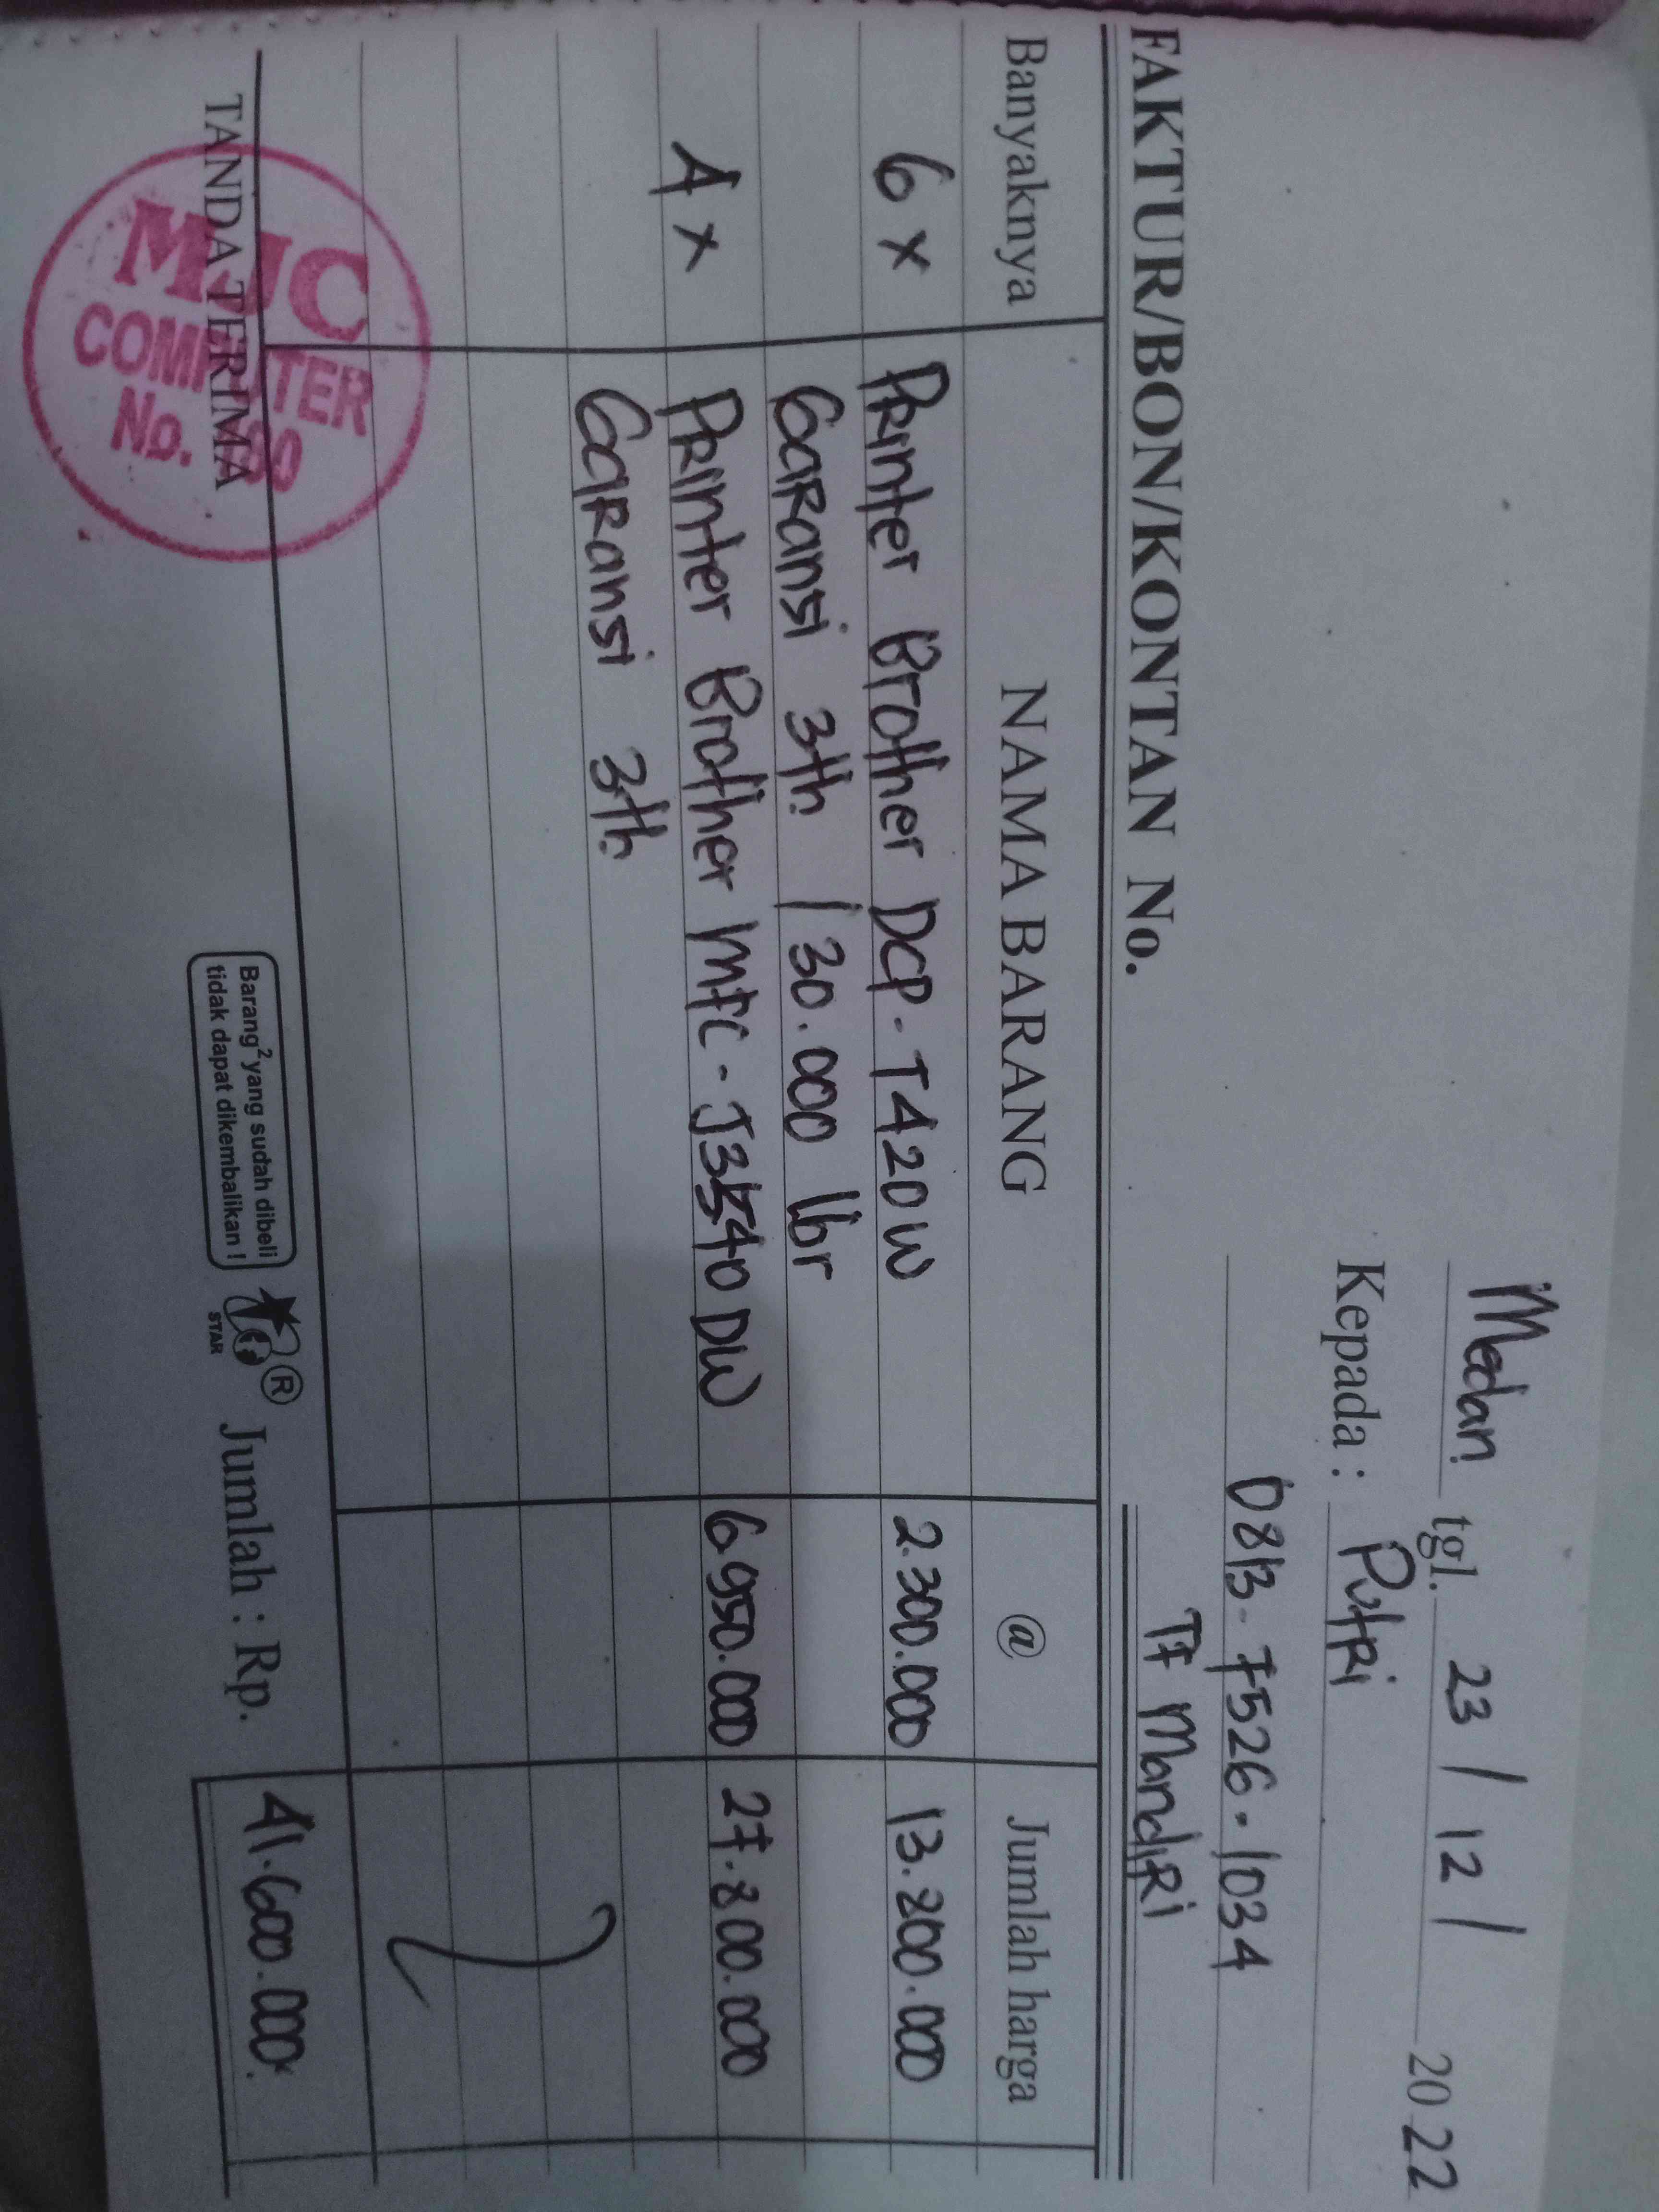 Medan tgl. 23 / 12 / 2022
Kepada : Putri
0813-7526.1034
FAKTUR/BON/KONTAN No. TF Mandiri
Banyaknya NAMA BARANG @ Jumlah harga
6 x Printer Brother DCP-T420W 2.300.000 13.800.000
Garansi 3th / 30.000 lbr
4 x Printer Brother MFC-J3540DW 6.950.000 27.800.000
Garansi 3th
TANDA TERIMA
MJC
COMPUTER
No.
Barang²yang sudah dibeli
tidak dapat dikembalikan !
STAR
®
Jumlah : Rp. 41.600.000